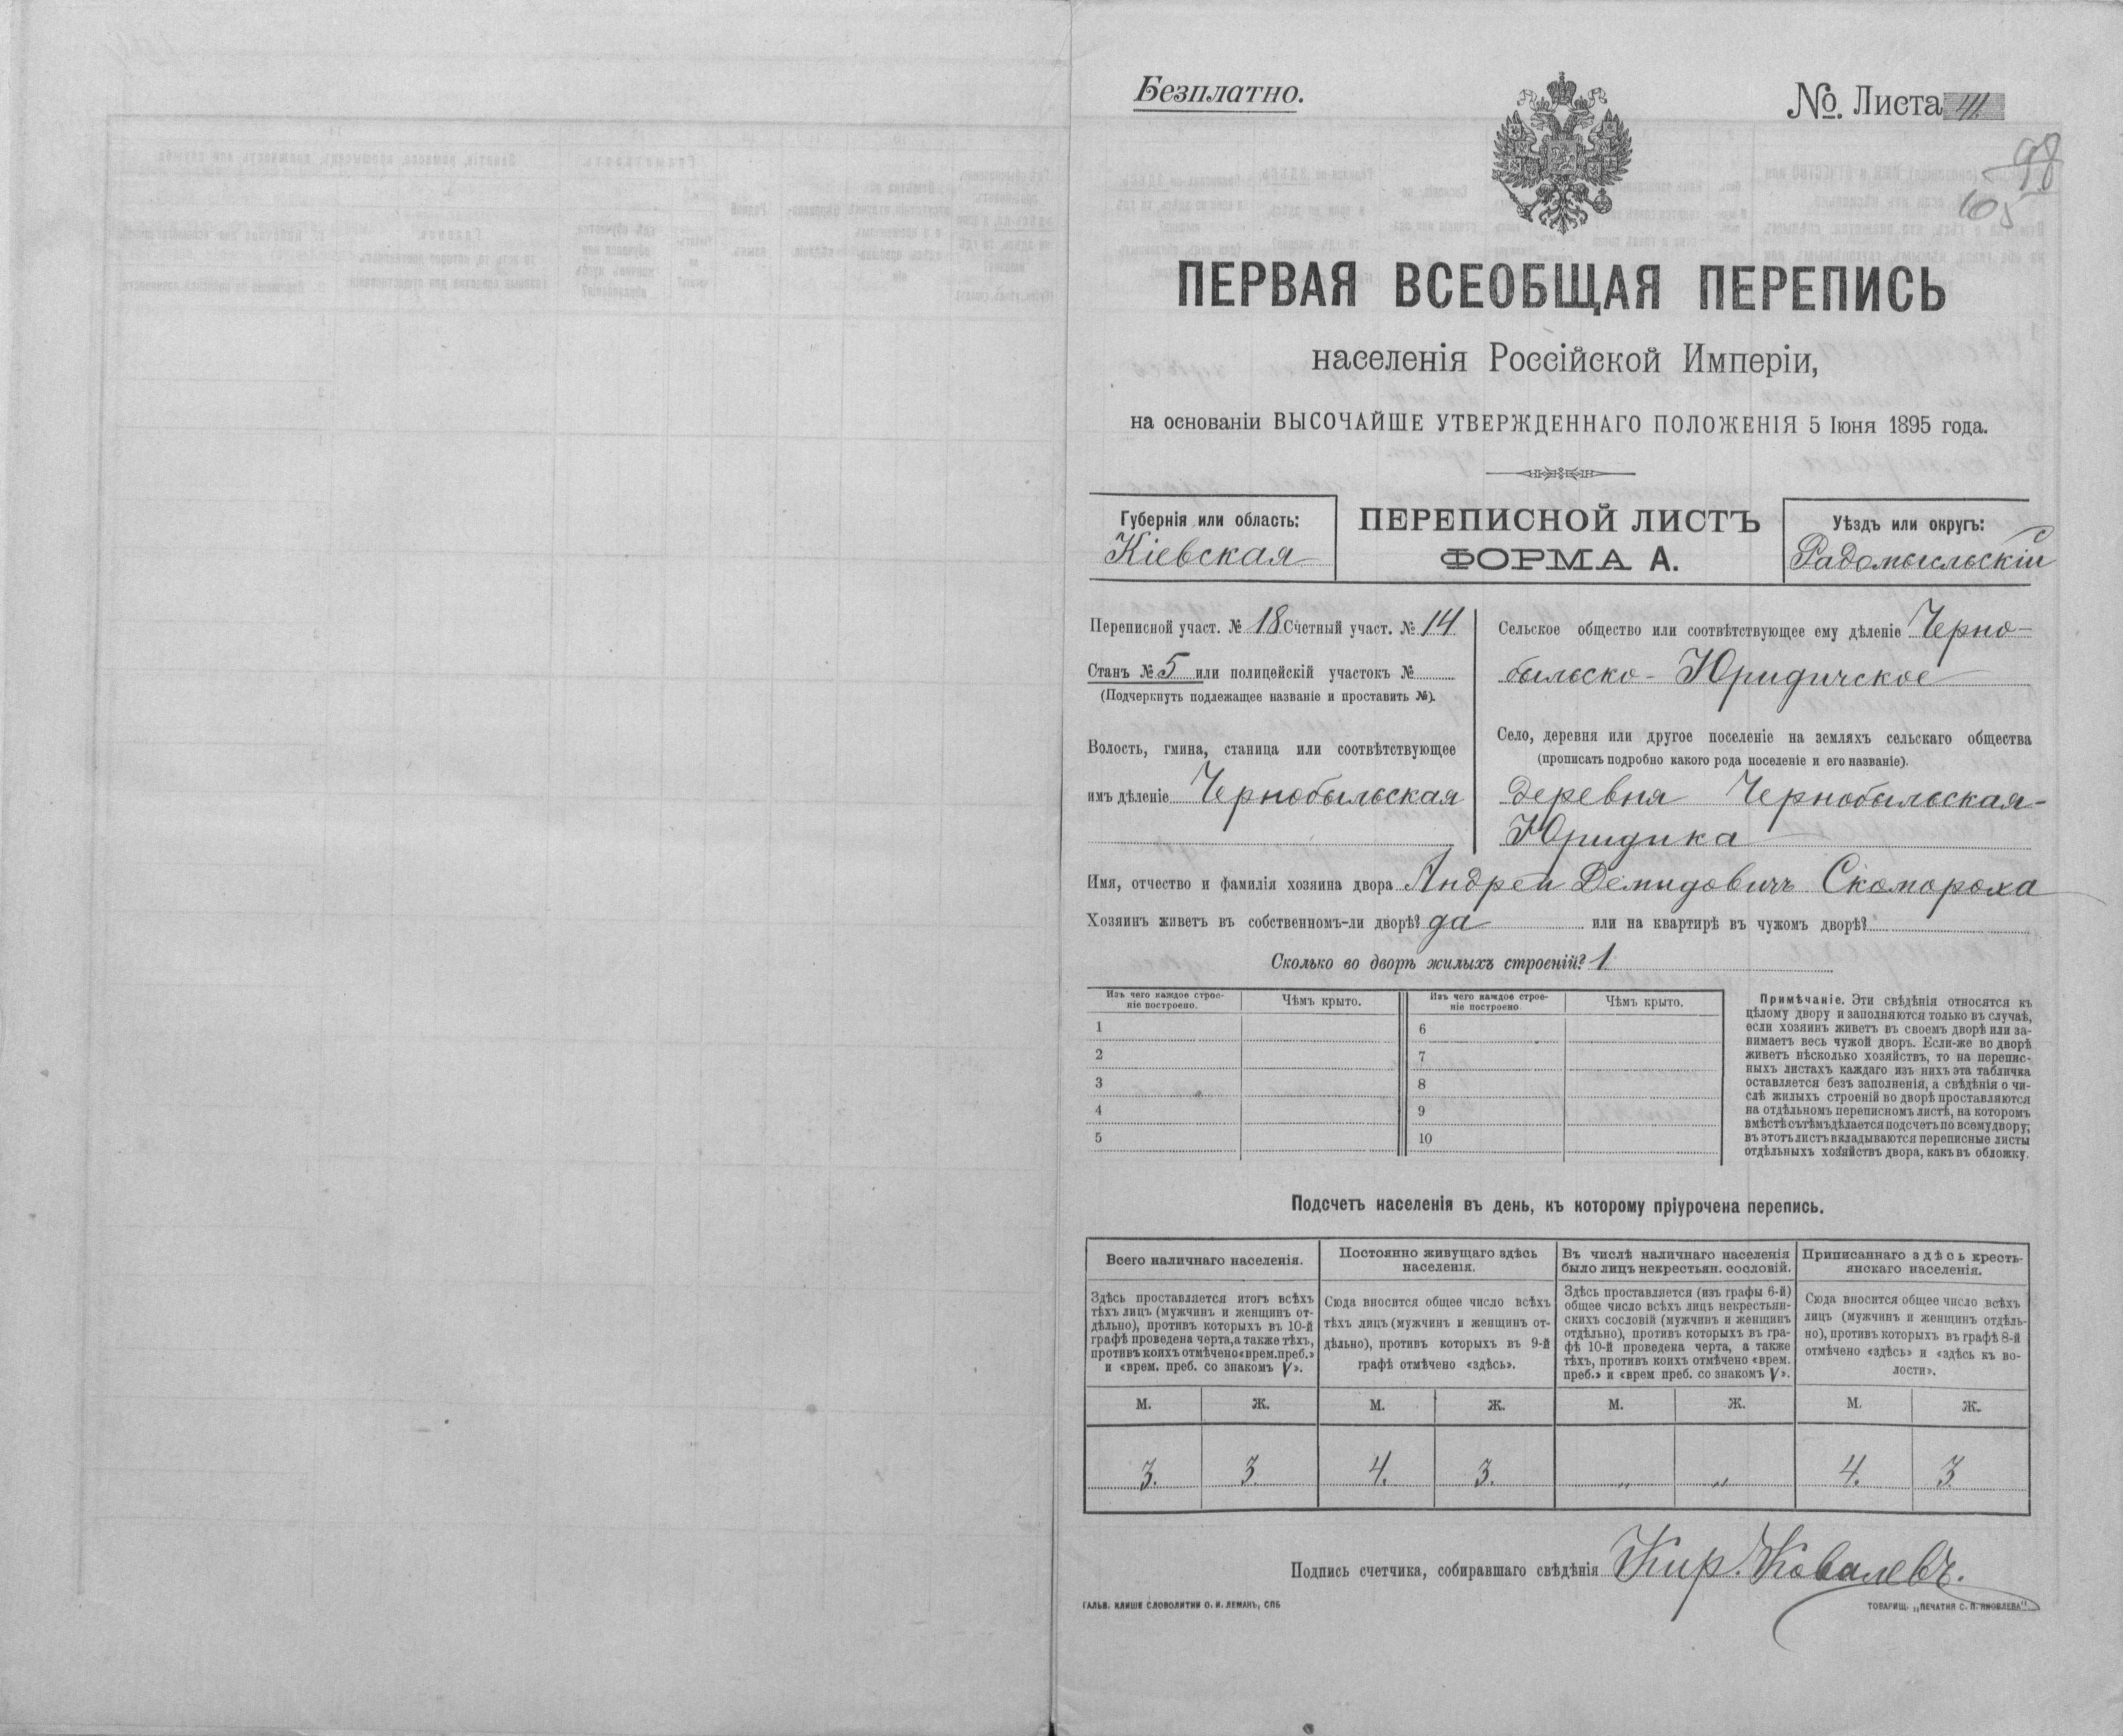 Безплатно.
№ Листа 41.
98
105
ПЕРВАЯ ВСЕОБЩАЯ ПЕРЕПИСЬ
населенія Россійской Имперіи,
на основаніи ВЫСОЧАЙШЕ УТВЕРЖДЕННАГО ПОЛОЖЕНІЯ 5 Іюня 1895 года.
Губернія или область:
Кіевская
ПЕРЕПИСНОЙ ЛИСТЪ
ФОРМА А.
Уѣздъ или округъ:
Радомысльскій
Переписной участ. № 18 Счетный участ. № 14
Станъ № 5 или полицейскій участокъ №
(Подчеркнуть подлежащее названіе и проставить №).
Волость, гмина, станица или соотвѣтствующее
имъ дѣленіе Чернобыльская
Сельское общество или соотвѣтствующее ему дѣленіе Черно-
быльско-Юридичское
Село, деревня или другое поселеніе на земляхъ сельскаго общества
(прописать подробно какого рода поселеніе и его названіе).
Деревня Чернобыльская-
Юридика
Имя, отчество и фамилія хозяина двора Андрей Демидовичъ Скомороха
Хозяинъ живетъ въ собственномъ-ли дворѣ? да или на квартирѣ въ чужомъ дворѣ?
Сколько во дворѣ жилыхъ строеній? 1
Изъ чего каждое строе-
ніе построено.
Чѣмъ крыто.
Изъ чего каждое строе-
ніе построено.
Чѣмъ крыто.
1
2
3
4
5
6
7
8
9
10
Примѣчаніе. Эти свѣдѣнія относятся къ
цѣлому двору и заполняются только въ случаѣ,
если хозяинъ живетъ въ своемъ дворѣ или за-
нимаетъ весь чужой дворъ. Если-же во дворѣ
живетъ нѣсколько хозяйствъ, то на перепис-
ныхъ листахъ каждаго изъ нихъ эта табличка
оставляется безъ заполненія, а свѣдѣнія о чи-
слѣ жилыхъ строеній во дворѣ проставляются
на отдѣльномъ переписномъ листѣ, на которомъ
вмѣстѣ съ тѣмъ дѣлается подсчетъ по всему двору;
въ этотъ листъ вкладываются переписные листы
отдѣльныхъ хозяйствъ двора, какъ въ обложку.
Подсчетъ населенія въ день, къ которому пріурочена перепись.
Всего наличнаго населенія.
Здѣсь проставляется итогъ всѣхъ
тѣхъ лицъ (мужчинъ и женщинъ от-
дѣльно), противъ которыхъ въ 10-й
графѣ проведена черта, а также тѣхъ,
противъ коихъ отмѣчено «врем. преб.»
и «врем. преб. со знакомъ V».
Постоянно живущаго здѣсь
населенія.
Сюда вносится общее число всѣхъ
тѣхъ лицъ (мужчинъ и женщинъ от-
дѣльно), противъ которыхъ въ 9-й
графѣ отмѣчено «здѣсь».
Въ числѣ наличнаго населенія
было лицъ некрестьян. сословій.
Здѣсь проставляется (изъ графы 6-й)
общее число всѣхъ лицъ некрестьян-
скихъ сословій (мужчинъ и женщинъ
отдѣльно), противъ которыхъ въ гра-
фѣ 10-й проведена черта, а также
тѣхъ, противъ коихъ отмѣчено «врем.
преб.» и «врем преб. со знакомъ V».
Приписаннаго здѣсь кресть-
янскаго населенія.
Сюда вносится общее число всѣхъ
лицъ (мужчинъ и женщинъ отдѣль-
но), противъ которыхъ въ графѣ 8-й
отмѣчено «здѣсь» и «здѣсь къ во-
лости».
М. Ж. М. Ж. М. Ж. М. Ж.
3. 3. 4. 3. „ „ 4. 3.
Подпись счетчика, собиравшаго свѣдѣнія Кир. Ковалевъ.
ГАЛЬВ. КЛИШЕ СЛОВОЛИТНИ О. И. ЛЕМАНЪ, СПБ
ТОВАРИЩ. „ПЕЧАТНЯ С. П. ЯКОВЛЕВА“